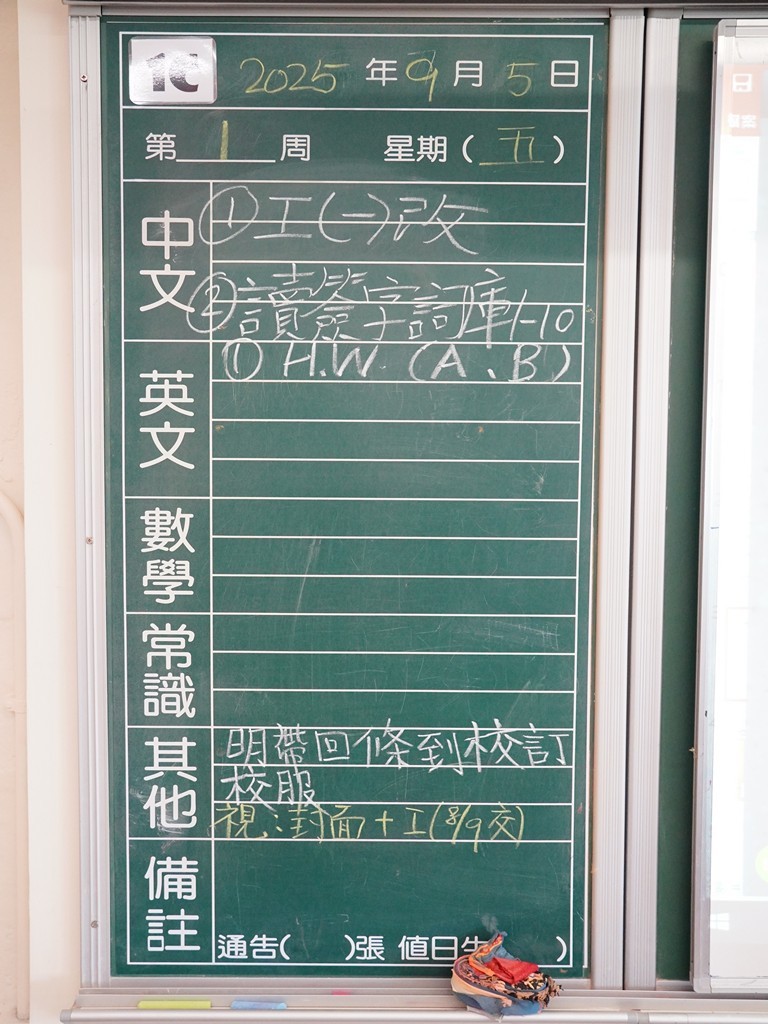 1C 2025年9月5日
第1周 星期(五)
中文
①工(一)改
②讀簽字詞庫1-10
英文
① H.W. (A、B)
數學
常識
其他
明帶回條到校訂
校服
視:封面+工(8/9交)
備註
通告( )張 值日生 )